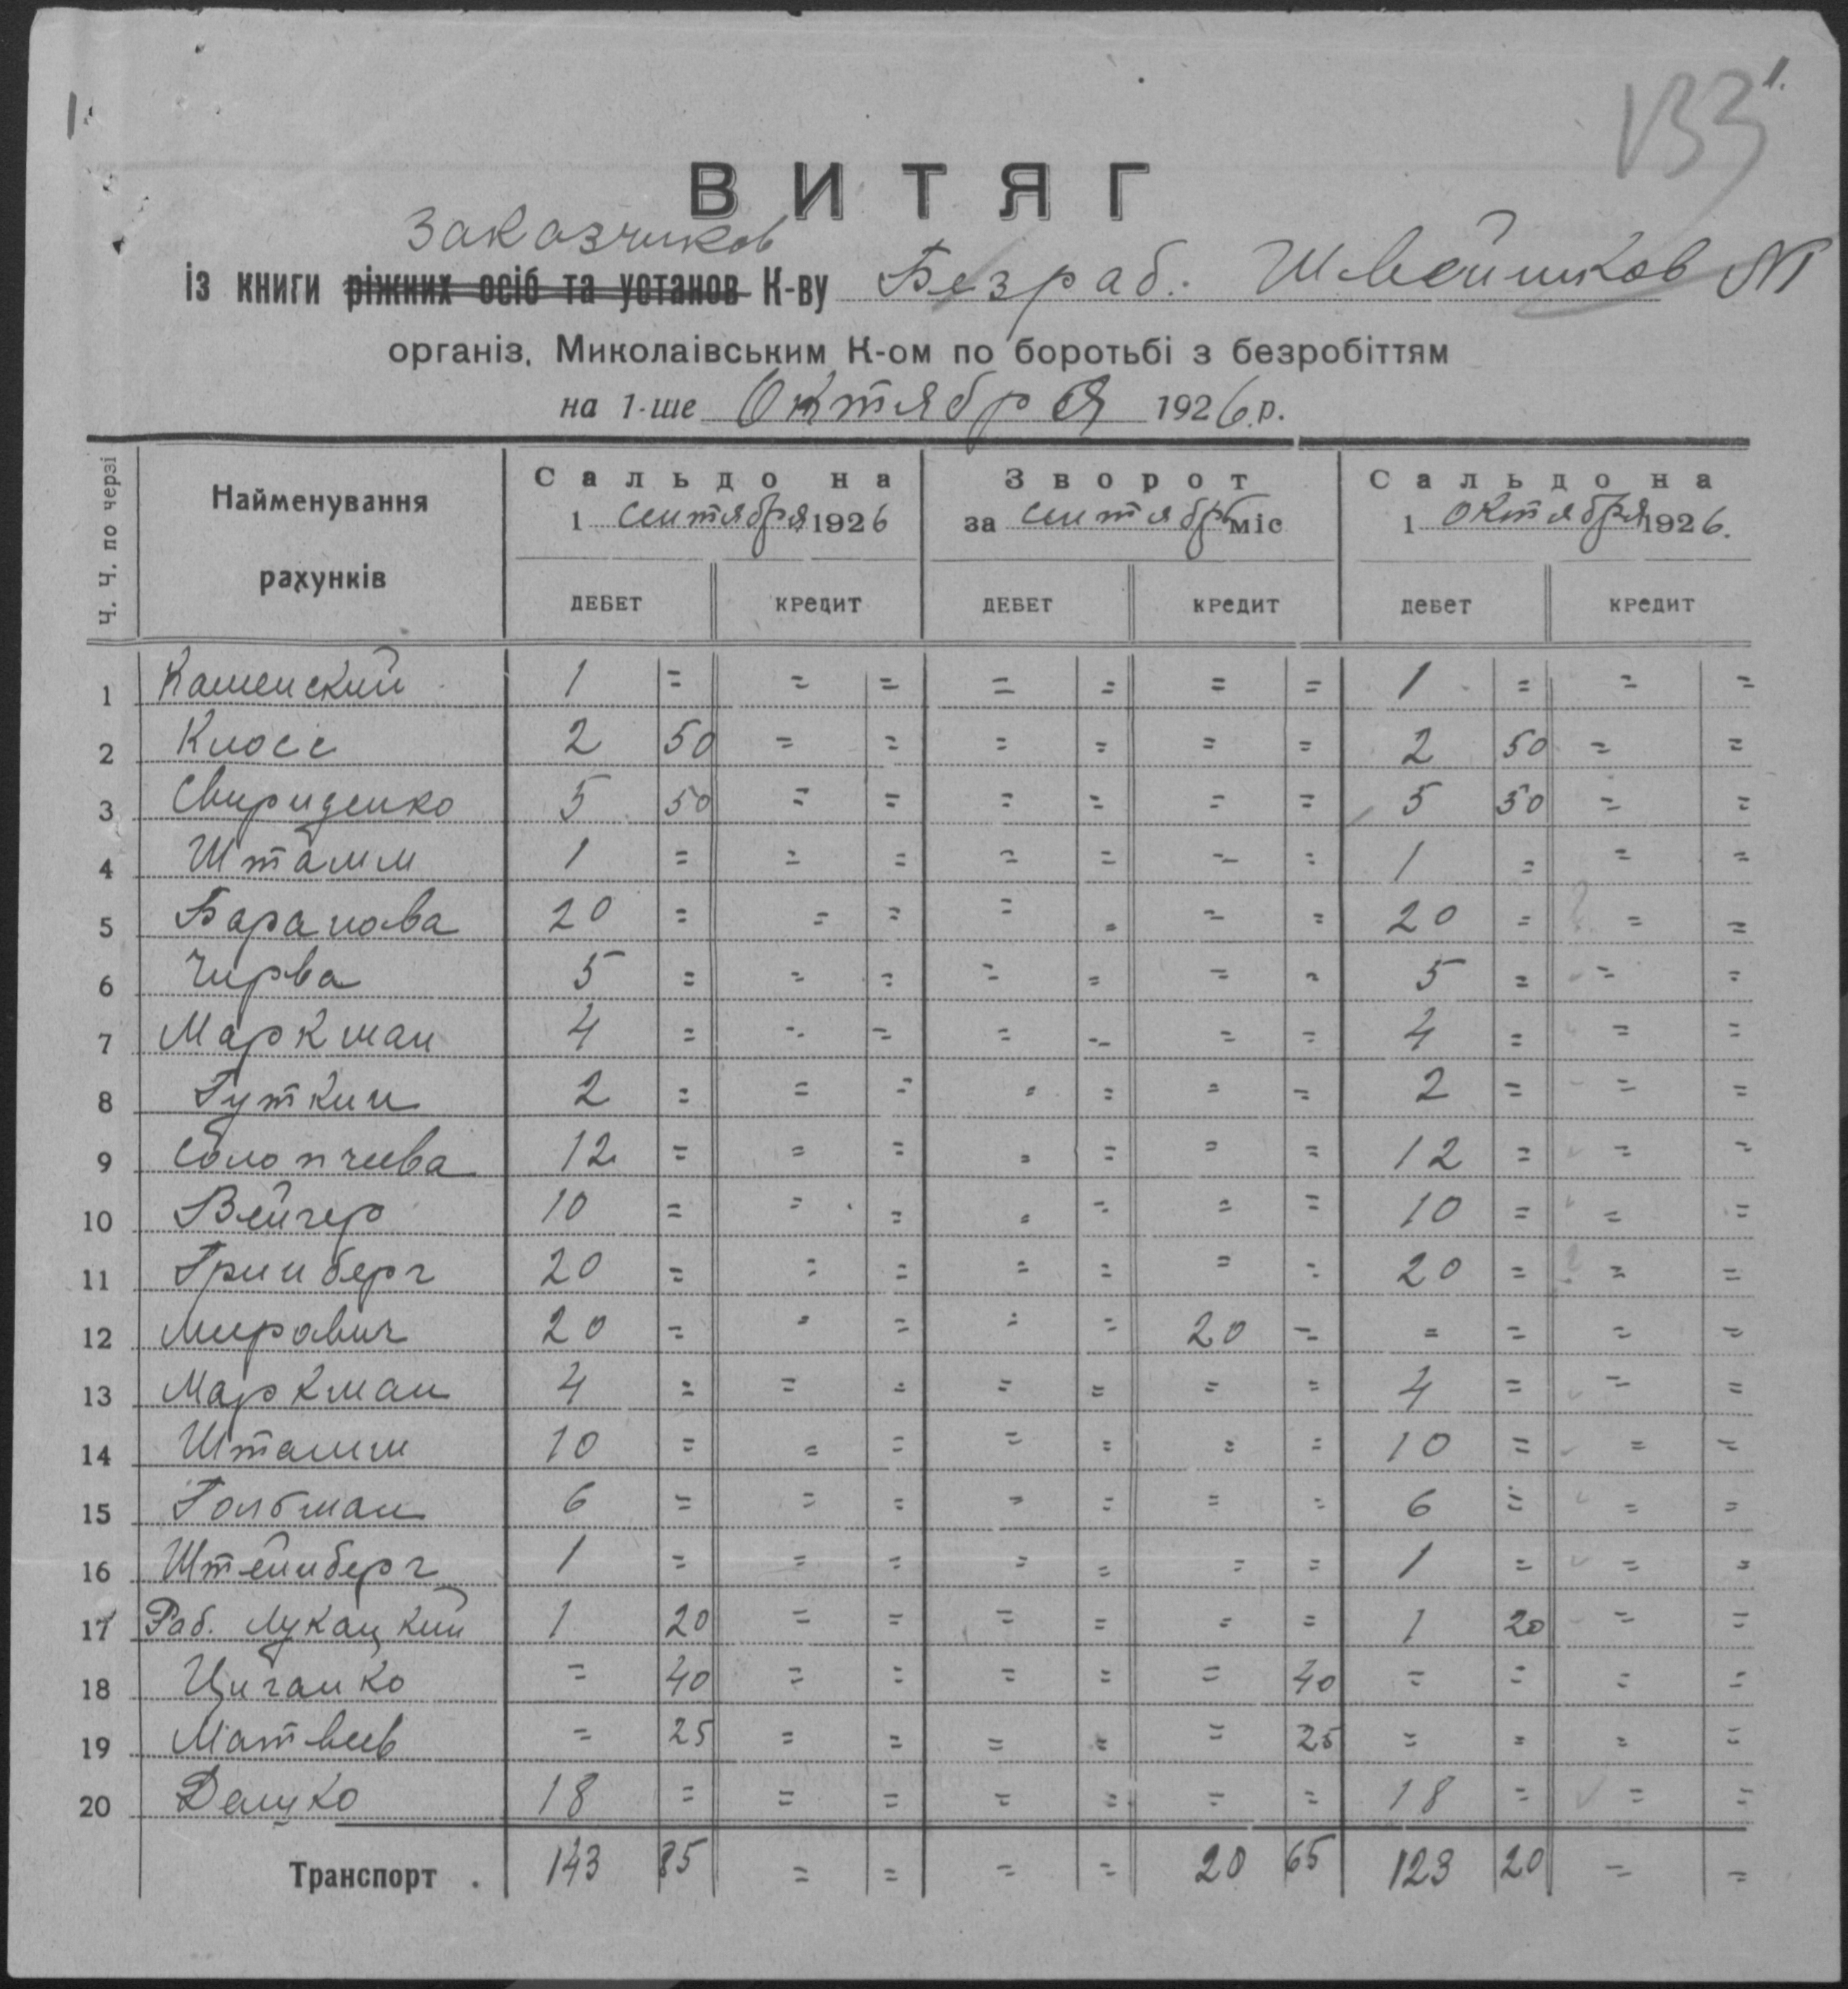 1.
133
ВИТЯГ
заказчиков
із книги ріжних осіб та установ К-ву Безраб. Швейников №1
організ. Миколаівським К-ом по боротьбі з безробіттям
на 1-ше Октября 1926 р.
Ч. Ч. по черзі Найменування рахунків Сальдо на 1 сентября 1926 Зворот за сентябрь міс Сальдо на 1 октября 1926.
ДЕБЕТ КРЕДИТ ДЕБЕТ КРЕДИТ ДЕБЕТ КРЕДИТ
1 Каменский 1 = = = = = = = 1 = = =
2 Клосс 2 50 = = = = = = 2 50 = =
3 Свириденко 5 50 = = = = = = 5 50 = =
4 Штамм 1 = = = = = = = 1 = = =
5 Баранова 20 = = = = = = = 20 = = =
6 Чирва 5 = = = = = = = 5 = = =
7 Маркман 4 = = = = = = = 4 = = =
8 Гуткин 2 = = = = = = = 2 = = =
9 12 = = = = = = = 12 = = =
10 Вейгер 10 = = = = = = = 10 = = =
11 Гринберг 20 = = = = = = = 20 = = =
12 Мирович 20 = = = = = 20 = = = = =
13 Маркман 4 = = = = = = = 4 = = =
14 Штамм 10 = = = = = = = 10 = = =
15 Голбман 6 = = = = = = = 6 = = =
16 Штейнберг 1 = = = = = = = 1 = = =
17 Раб. Лукацкий 1 20 = = = = = = 1 20 = =
18 Циганко = 40 = = = = = 40 = = = =
19 Матвеев = 25 = = = = = 25 = = = =
20 18 = = = = = = = 18 = = =
Транспорт 143 85 = = = = 20 65 123 20 = =